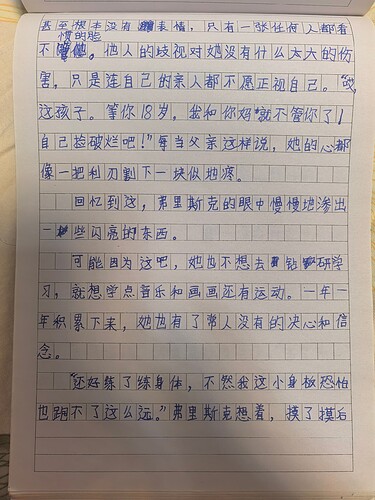 甚至根本没有表情，只有一张任何人都看
惯的脸
不惯他。他人的歧视对她没有什么太大的伤
害，只是连自己的亲人都不愿正视自己。“哎，
这孩子。等你18岁，我和你妈就不管你了！
自己捡破烂吧！”每当父亲这样说，她的心都
像一把利刃割下一块似地疼。
回忆到这，弗里斯克的眼中慢慢地渗出
一些闪亮的东西。
可能因为这吧，她也不想去钻研学
习，就想学点音乐和画画还有运动。一年一
年积累下来，她也有了常人没有的决心和信
念。
“还好练了练身体，不然我这小身板恐怕
也跑不了这么远。”弗里斯克想着，摸了摸后